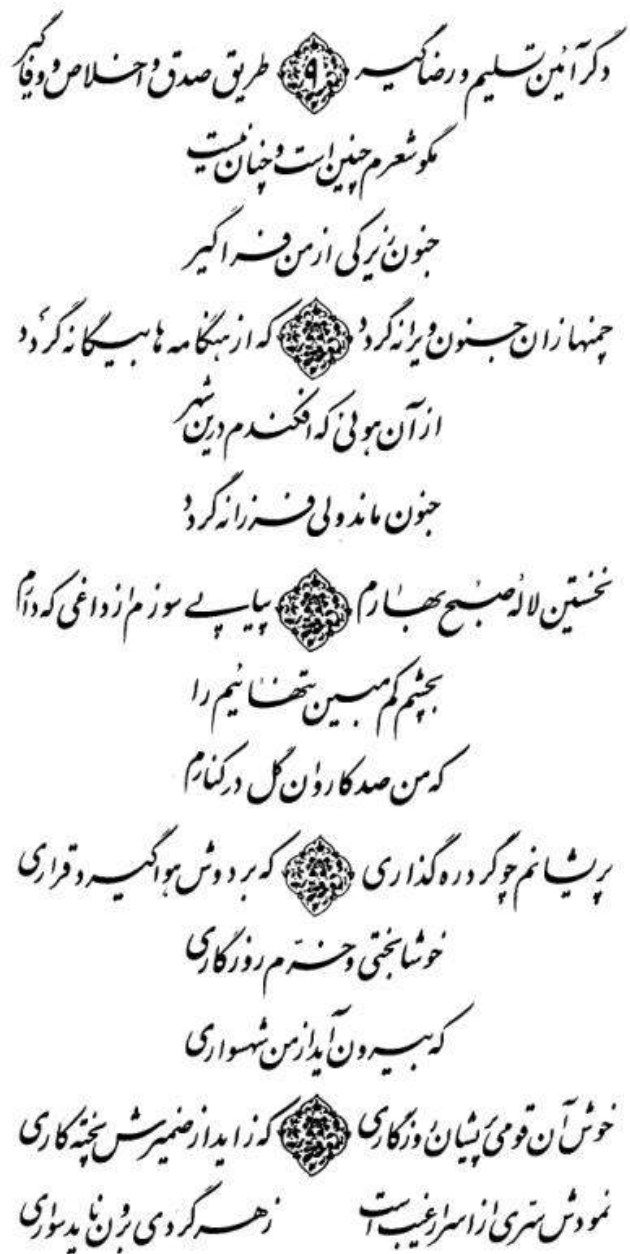 دگر آئین تسلیم و رضا گیر ۹ طریق صدق و اخلاص و وفا گیر
مگو شعرم چنین است و چنان نیست
جنون زیرکی از من فرا گیر
چمنها زان جنون ویرانه گردد که از هنگامه ها بیگانه گردد
از آن هوئی که افکندم درین شهر
جنون ماند ولی فرزانه گردد
نخستین لالهٔ صبح بهارم پیاپے سوزم از داغی که دارم
بچشم کم مبین تنهائیم را
که من صد کاروان گل در کنارم
پریشانم چو گرد ره گذاری که بر دوش هوا گیرد قراری
خوشا بختی و خرّم روزگاری
که بیرون آید از من شهسواری
خوش آن قومی پریشان روزگاری که زاید از ضمیرش پخته کاری
نمودش سرّی از اسرار غیب است ز هر گردی برون ناید سواری